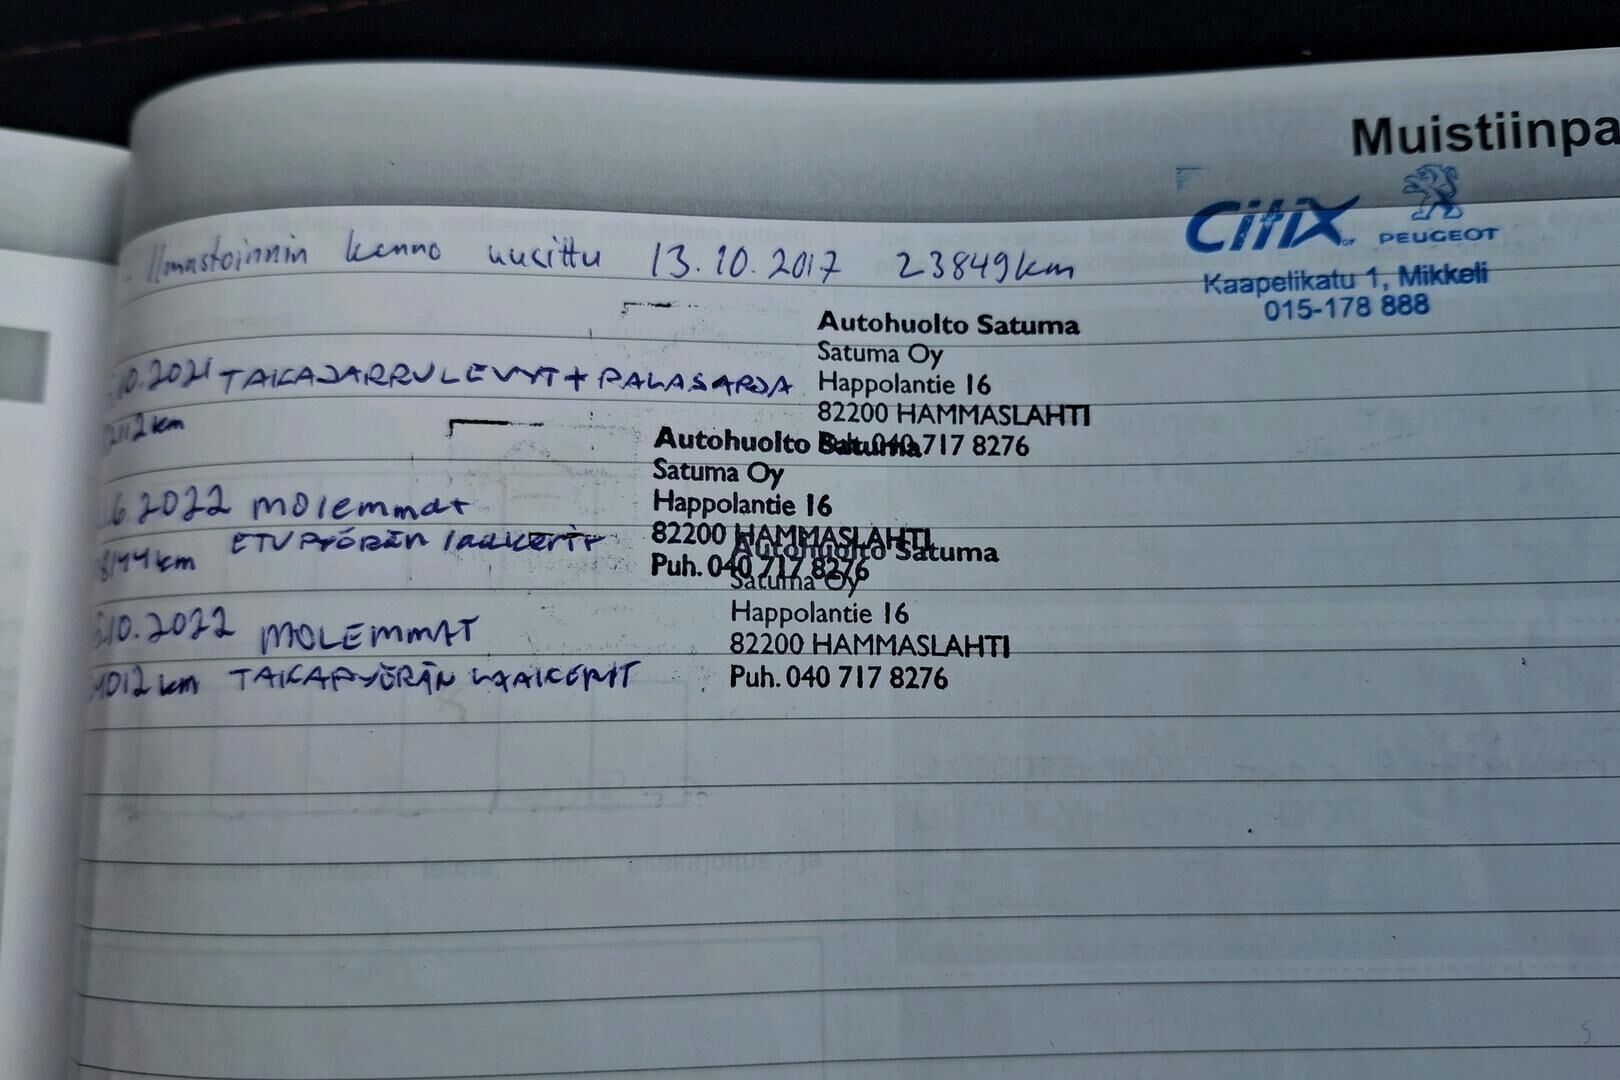 Muistiinpa
CitiX OY PEUGEOT
Kaapelikatu 1, Mikkeli
015-178 888
- Ilmastoinnin kenno uusittu 13.10.2017 23849km
Autohuolto Satuma
Satuma Oy
Happolantie 16
82200 HAMMASLAHTI
Puh. 040 717 8276
.10.2021 TAKAJARRULEVYT + PALASARJA
112km
Autohuolto Satuma
Satuma Oy
Happolantie 16
82200 HAMMASLAHTI
Puh. 040 717 8276
.6.2022 molemmat
144km ETUPYÖRÄN laakerit
Autohuolto Satuma
Satuma Oy
Happolantie 16
82200 HAMMASLAHTI
Puh. 040 717 8276
.10.2022 MOLEMMAT
012km TAKAPYÖRÄN LAAKERIT